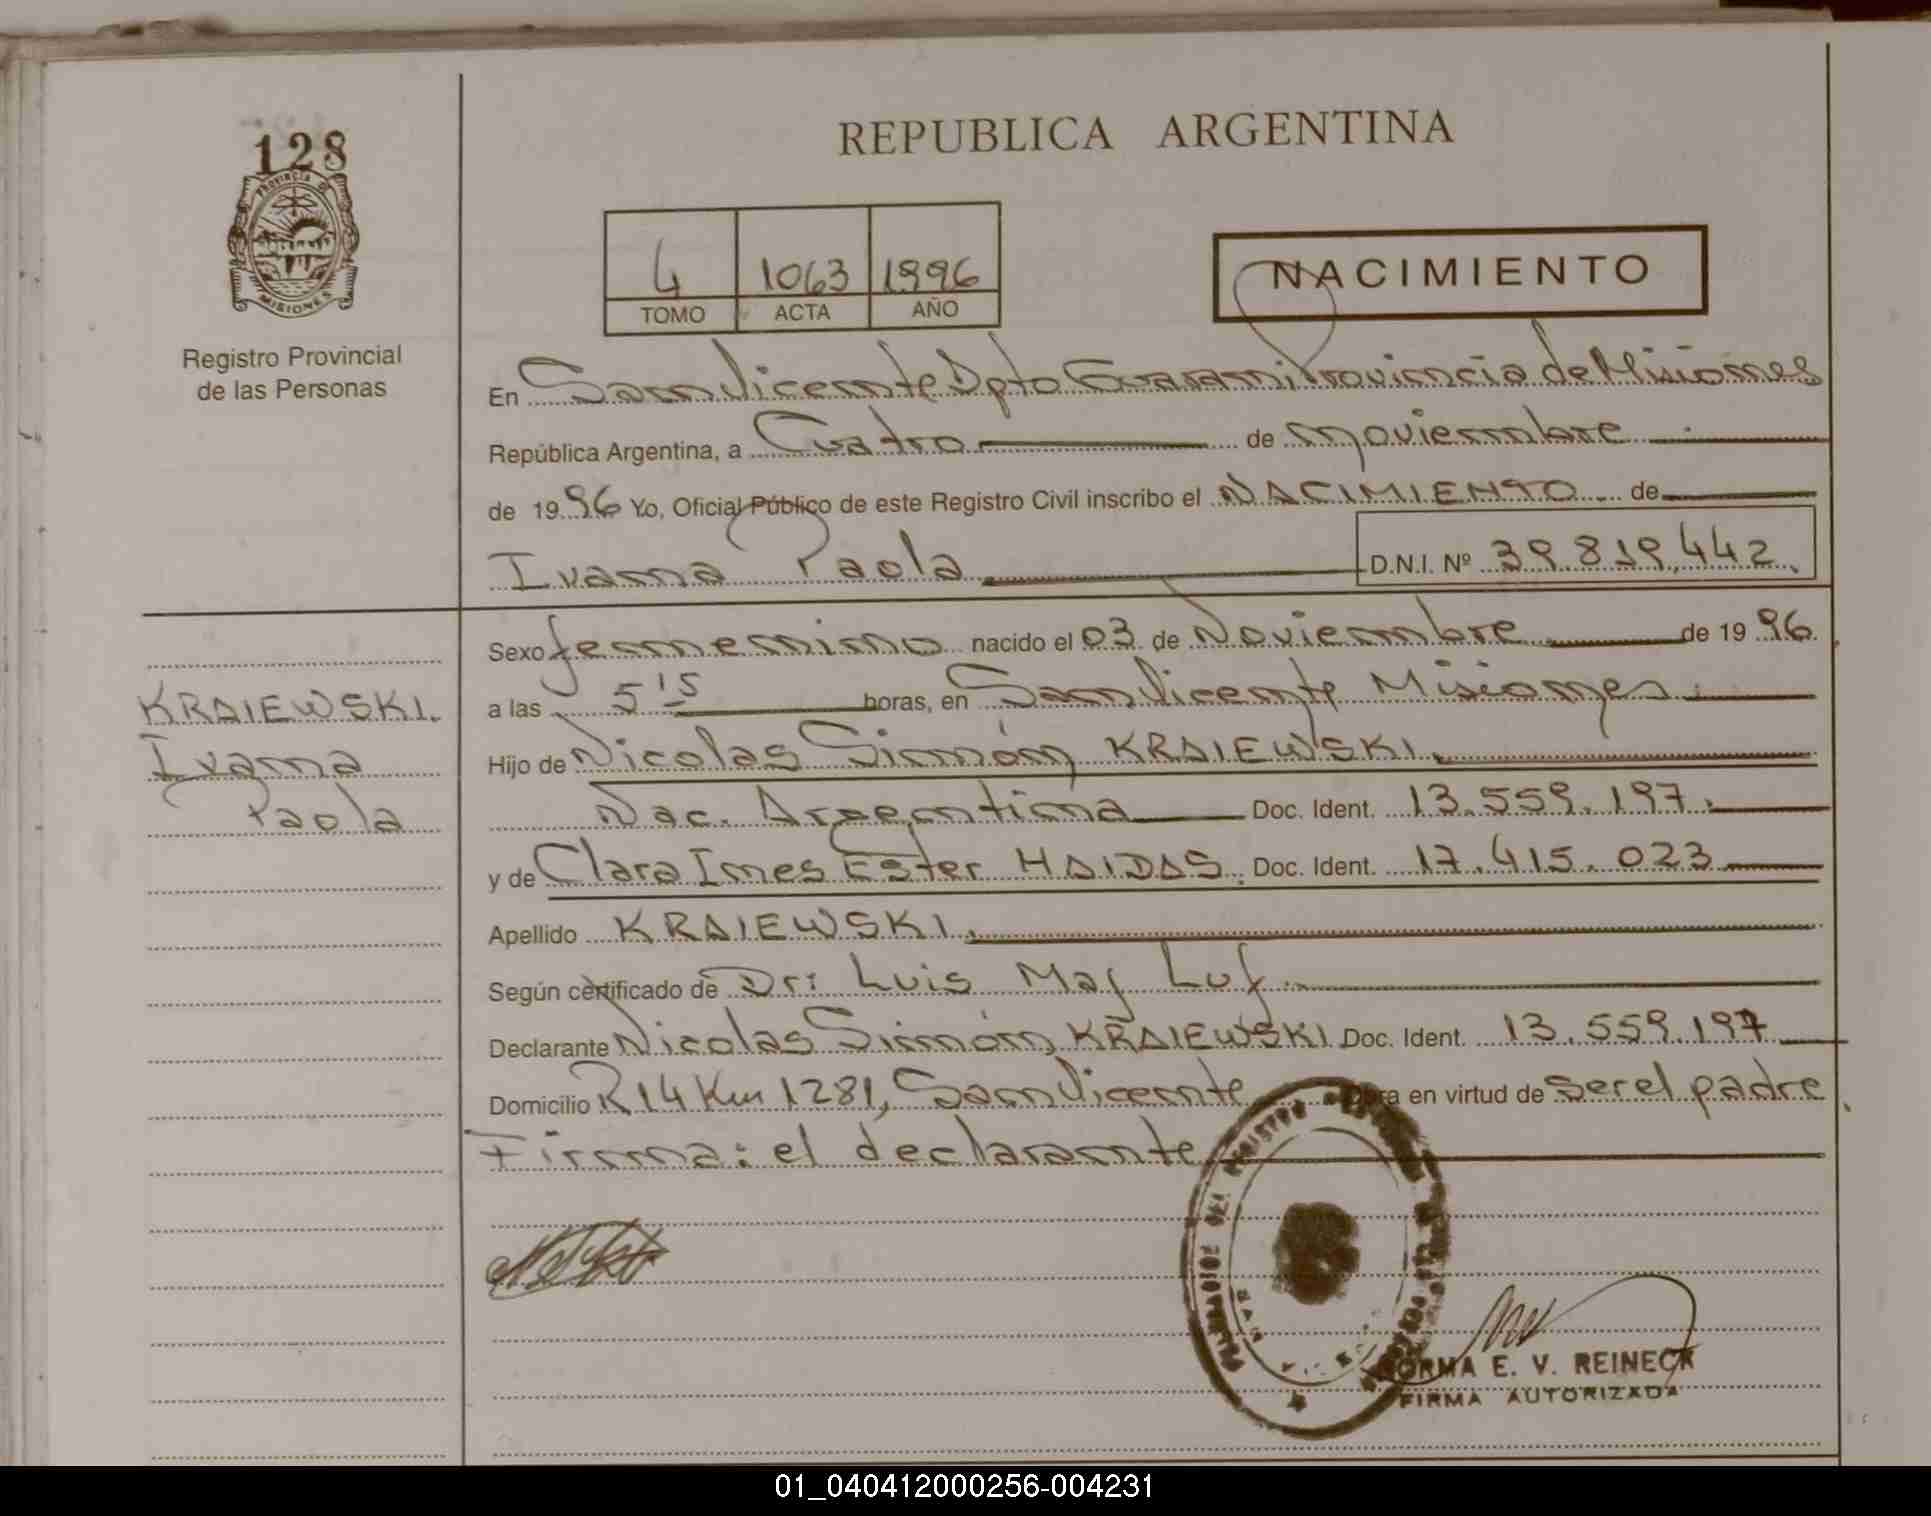 128
PROVINCIA DE
MISIONES
Registro Provincial
de las Personas
REPUBLICA ARGENTINA
4 1063 1996
TOMO ACTA AÑO
NACIMIENTO
En San Vicente Dpto Guarani Provincia de Misiones
República Argentina, a Cuatro de noviembre
de 1996 Yo, Oficial Público de este Registro Civil inscribo el NACIMIENTO de
Ivanna Paola D.N.I. Nº 39.819.442.
KRAIEWSKI.
Ivanna
Paola
Sexo femenino nacido el 03 de Noviembre de 1996.
a las 5 15 horas, en San Vicente Misiones.
Hijo de Nicolas Simón KRAIEWSKI.
Nac. Argentina Doc. Ident. 13.559.197.
y de Clara Ines Ester HAIDAS. Doc. Ident. 17.415.023
Apellido KRAIEWSKI.
Según certificado de Dr: Luis
Declarante Nicolas Simón KRAIEWSKI Doc. Ident. 13.559.197
Domicilio R 14 Km 1281, San Vicente Obra en virtud de ser el padre
Firma: el declarante
NORMA E. V. REINECK
FIRMA AUTORIZADA
01_040412000256-004231